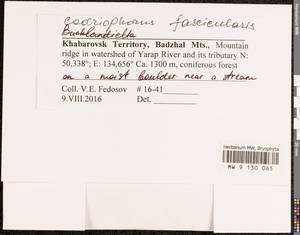 Codriophorus fascicularis
Bucklandiella
Khabarovsk Territory, Badzhal Mts., Mountain
ridge in watershed of Yarap River and its tributary N:
50,338°; E: 134,656° Ca. 1300 m, coniferous forest
on a moist boulder near a stream
Coll. V.E. Fedosov # 16-41
9.VIII.2016 Det.
Herbarium MW, Bryophyta
MW 9 130 065